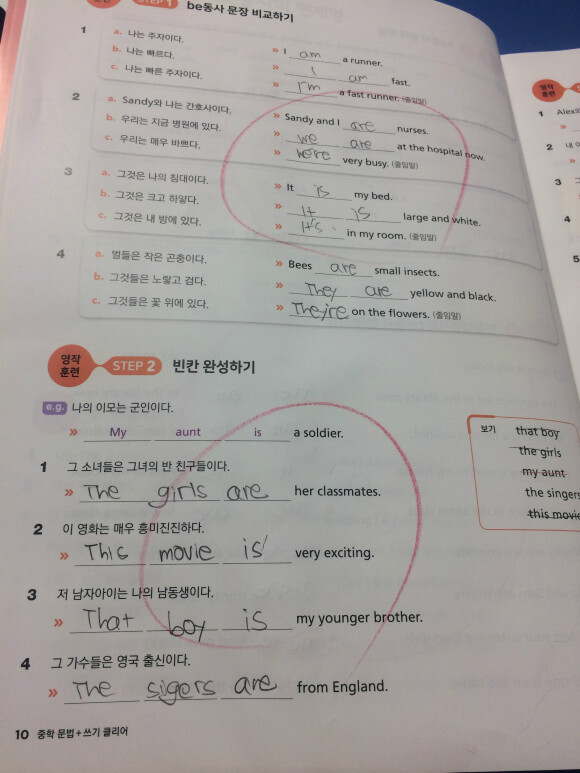 STEP 1 be동사 문장 비교하기
1 a. 나는 주자이다. » I am a runner.
b. 나는 빠르다. » I am fast.
c. 나는 빠른 주자이다. » I'm a fast runner. (줄임말)
2 a. Sandy와 나는 간호사이다. » Sandy and I are nurses.
b. 우리는 지금 병원에 있다. » we are at the hospital now.
c. 우리는 매우 바쁘다. » we're very busy. (줄임말)
3 a. 그것은 나의 침대이다. » It is my bed.
b. 그것은 크고 하얗다. » It is large and white.
c. 그것은 내 방에 있다. » It's in my room. (줄임말)
4 a. 벌들은 작은 곤충이다. » Bees are small insects.
b. 그것들은 노랗고 검다. » They are yellow and black.
c. 그것들은 꽃 위에 있다. » They're on the flowers. (줄임말)
영작 훈련 STEP 2 빈칸 완성하기
e.g. 나의 이모는 군인이다.
» My aunt is a soldier.
1 그 소녀들은 그녀의 반 친구들이다.
» The girls are her classmates.
2 이 영화는 매우 흥미진진하다.
» This movie is very exciting.
3 저 남자아이는 나의 남동생이다.
» That boy is my younger brother.
4 그 가수들은 영국 출신이다.
» The sigers are from England.
보기 that boy
the girls
my aunt
the singers
this movie
10 중학 문법+쓰기 클리어
영작 훈련
1
»
2 내
»
3
4
5